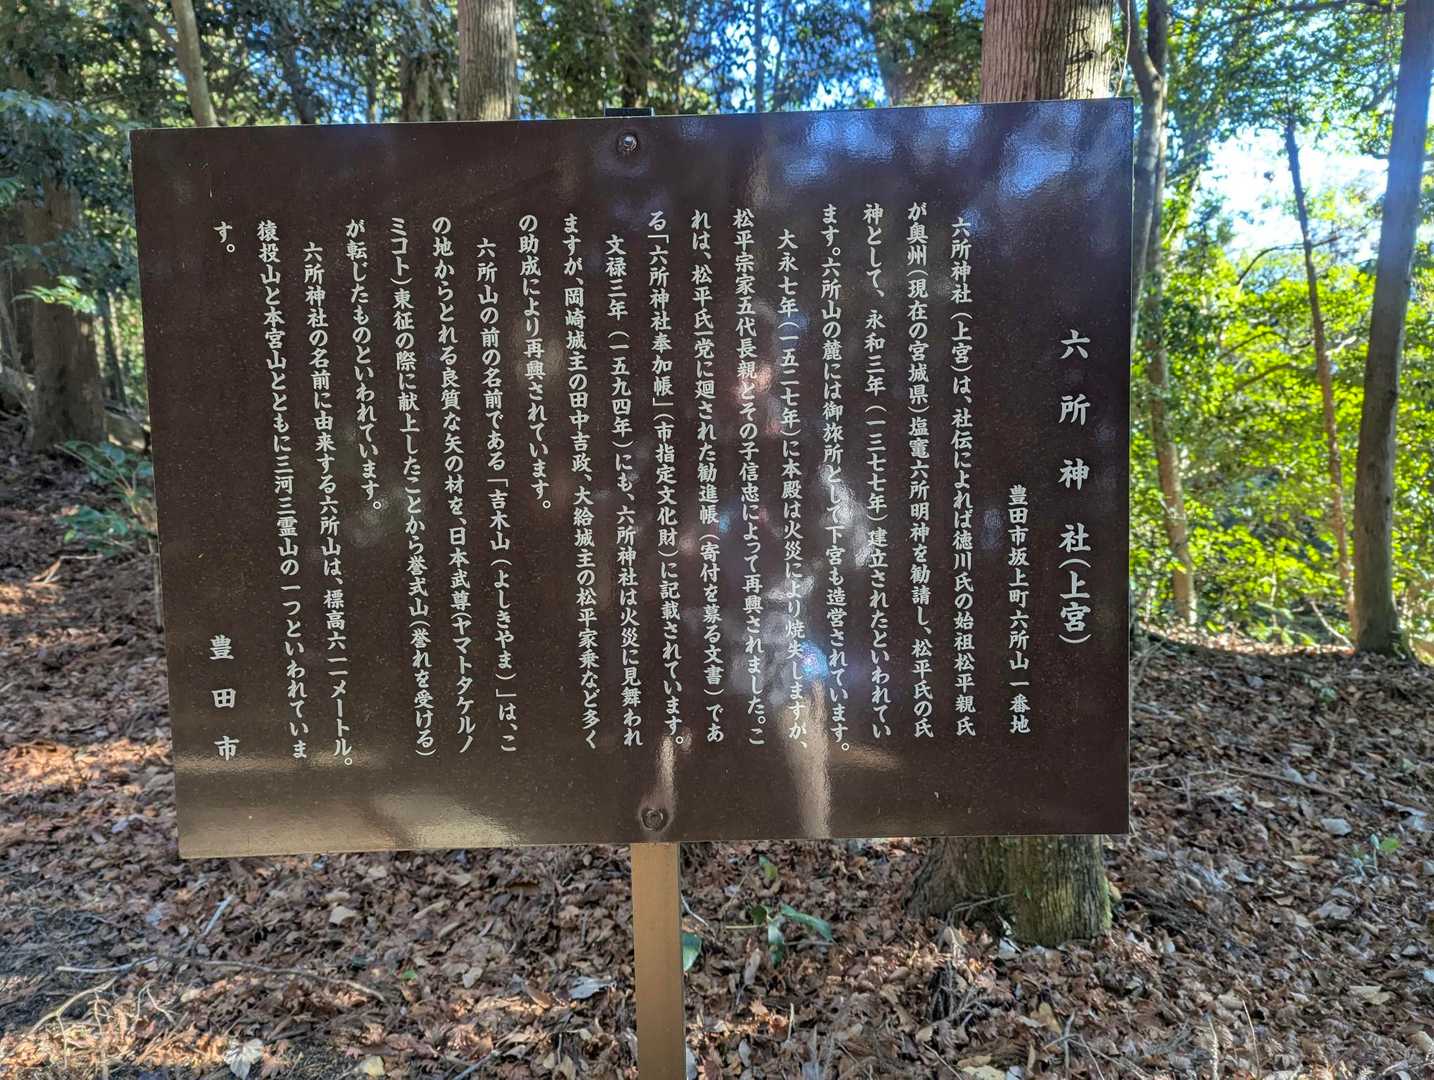 六所神社(上宮)
豊田市坂上町六所山一番地
六所神社(上宮)は、社伝によれば徳川氏の始祖松平親氏
が奥州(現在の宮城県)塩竈六所明神を勧請し、松平氏の氏
神として、永和三年(一三七七年)建立されたといわれてい
ます。六所山の麓には御旅所として下宮も造営されています。
大永七年(一五二七年)に本殿は火災により焼失しますが、
松平宗家五代長親とその子信忠によって再興されました。こ
れは、松平氏一党に廻された勧進帳(寄付を募る文書)であ
る「六所神社奉加帳」(市指定文化財)に記載されています。
文禄三年(一五九四年)にも、六所神社は火災に見舞われ
ますが、岡崎城主の田中吉政、大給城主の松平家乗など多く
の助成により再興されています。
六所山の前の名前である「吉木山(よしきやま)」は、こ
の地からとれる良質な矢の材を、日本武尊(ヤマトタケルノ
ミコト)東征の際に献上したことから誉式山(誉れを受ける)
が転じたものといわれています。
六所神社の名前に由来する六所山は、標高六一一メートル。
猿投山と本宮山とともに三河三霊山の一つといわれていま
す。
豊田市